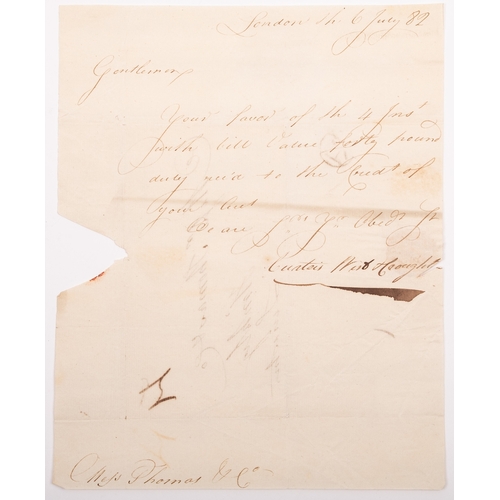 London the 6 July 82
Gentlemen
Your favor of the 4 Ins't
with bill Value forty pound
duly rec'd to the Credt of
your Acct
We are Yr Obedt St
Curtis West
Mess Thomas & Co